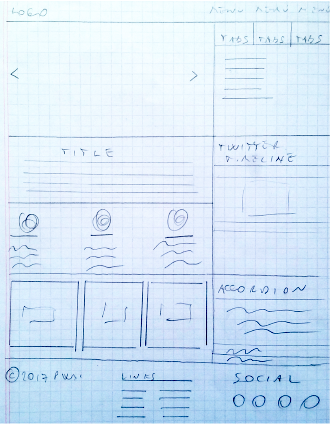 LOGO
MENU MENU MENU
TABS TABS TABS
TITLE
TWITTER
TIMELINE
ACCORDION
©2017
LINKS
SOCIAL